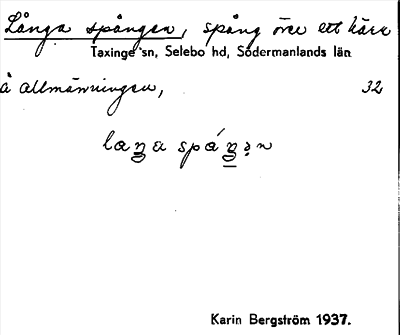 Långa spången, spång över ett kärr
Taxinge sn, Selebo hd, Södermanlands län
å allmänningen, 32
Karin Bergström 1937.